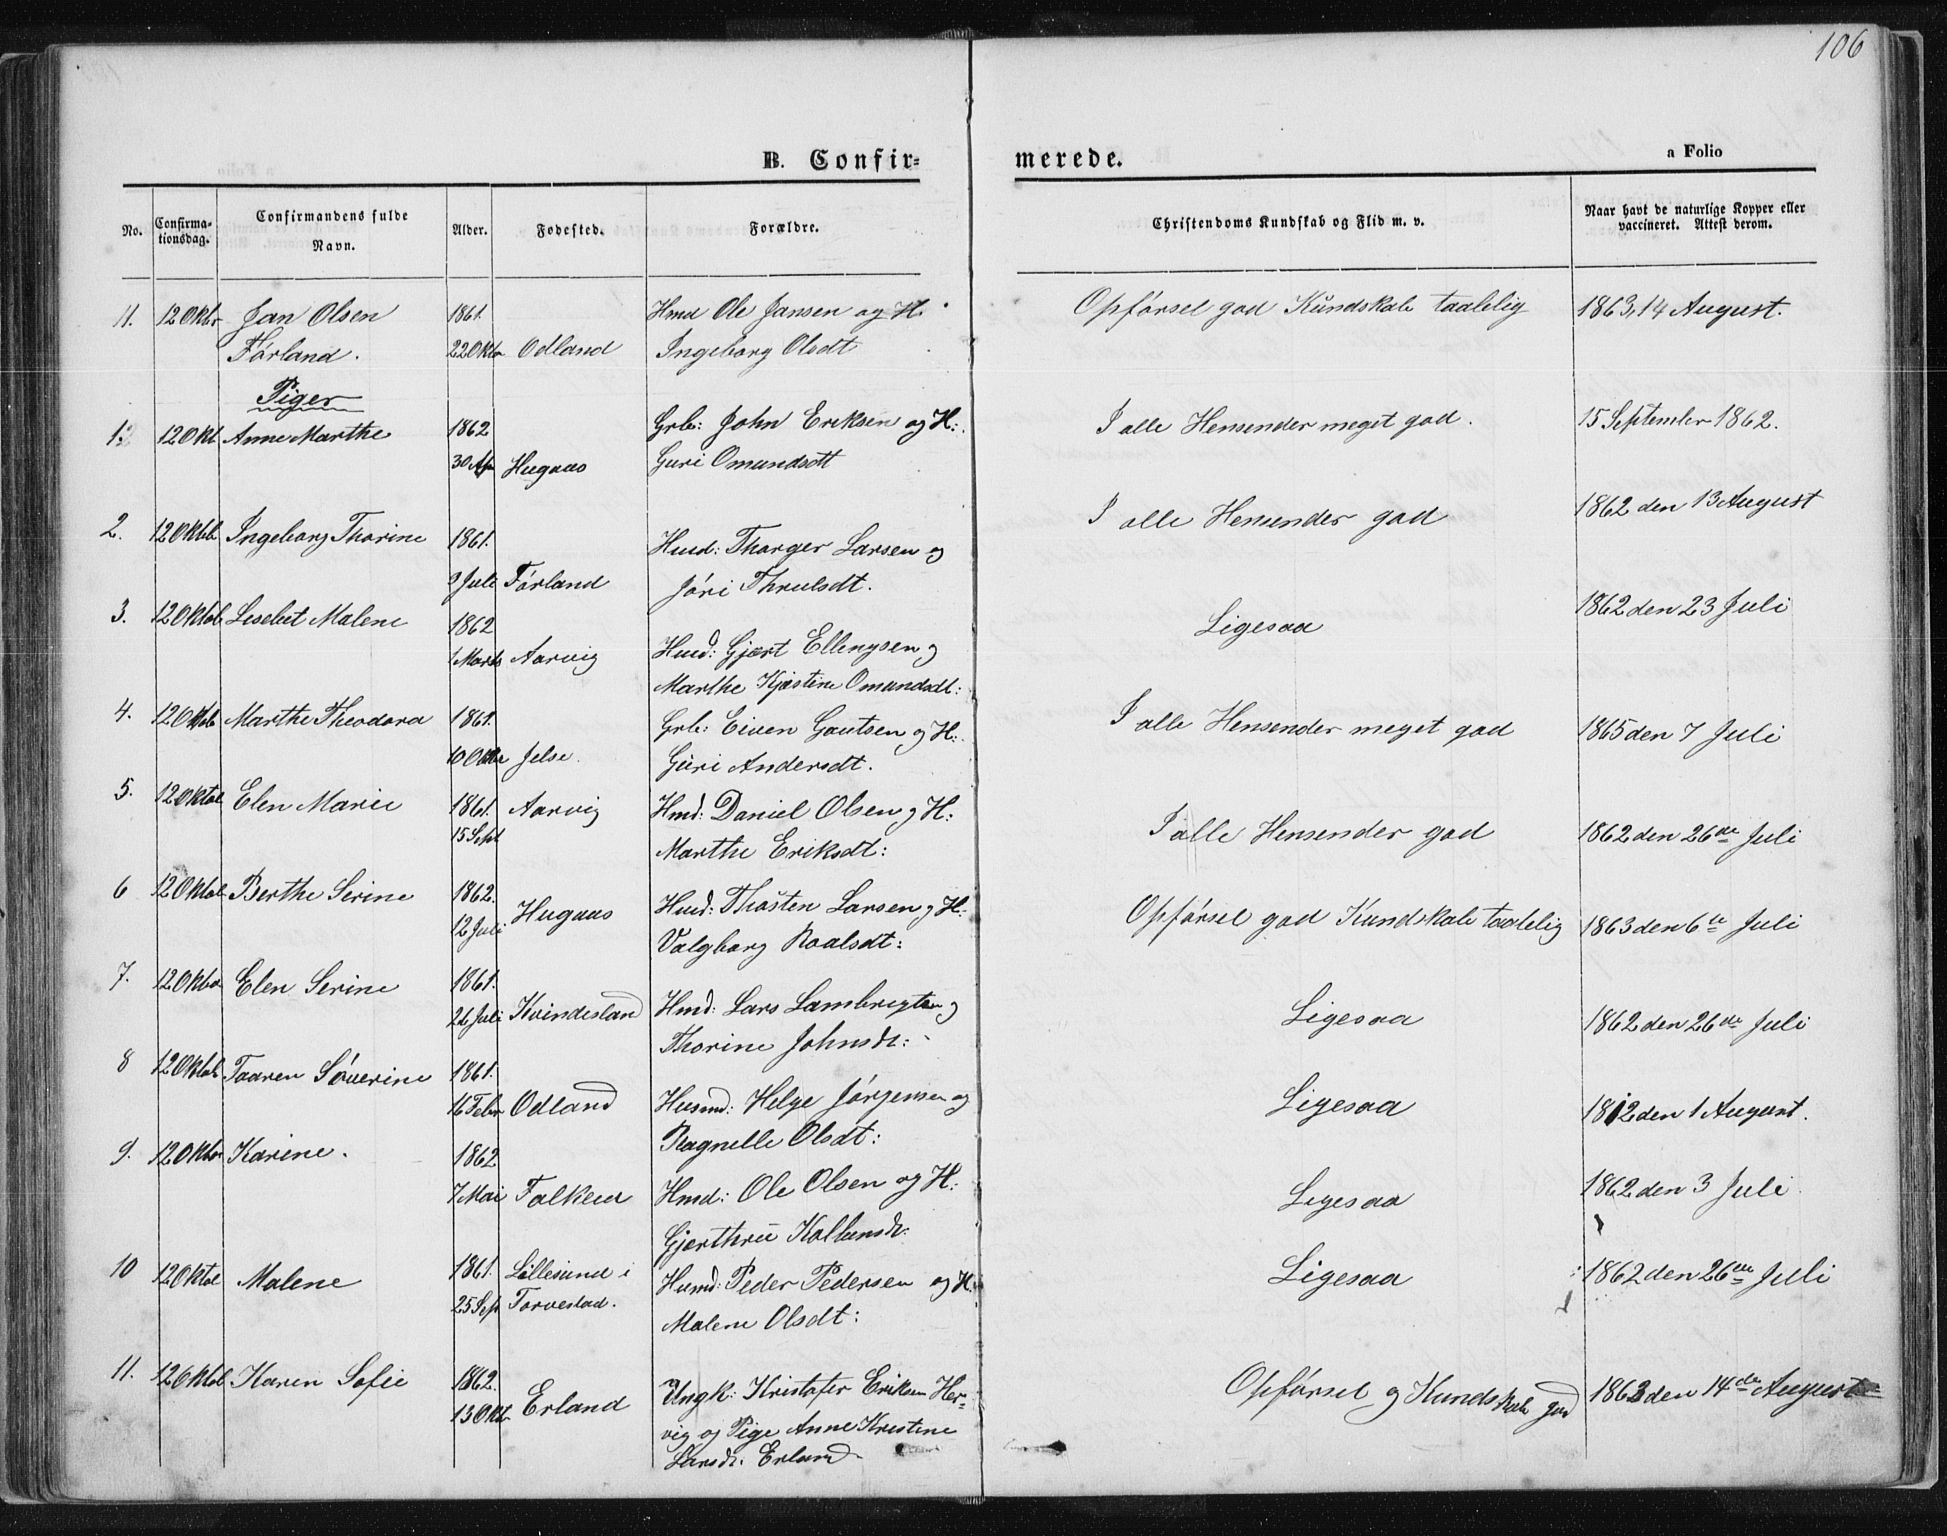 106
B. Confir= merede.
a Folio
No. Confirma-tionsdag. Confirmandens fulde Navn. Alder. Fødested. Forældre. Christendoms Kundskab og Flid m. v. Naar havt de naturlige Kopper eller vaccineret. Attest derom.
11. 12 Oktbr Jan Olsen 1861. Hmd Ole Jansen og H. Opførsel god Kundskab taalelig 1863, 14 August.
Førland. 22 Oktbr Odland Ingeborg Olsdt
Piger
1. 12 Okt Anne Marthe 1862 Grb: John Eriksen og H: I alle Hensender meget god. 15 September 1862.
30 Apr Hugaas Guri Omundsdtt
2. 12 Oktb Ingeborg Thorine 1861. Husd: Thorger Larsen og I alle Hensender god 1862 den 13 August
9 Juli Førland Jöri Thrulsdt.
3. 12 Oktob Lisebet Malene 1862 Ligesaa 1862 den 23 Juli
1 Marts Aarvig Husd: Gjært Ellengsen og
Marthe Kjæstine Omundsdt:
4. 12 Oktb Marthe Theodora 1861. Grb: Eiven Gautsen og H: I alle Hensender meget god 1865 den 7 Juli
10 Oktbr Jelse. Guri Andersdt.
5. 12 Oktob Elen Marie 1861. Aarvig Hmd: Daniel Olsen og H: I alle Hensender god 1862 den 26de Juli
15 Sept Marthe Eriksdt:
6 12 Oktob Berthe Serine 1862. Hugaas Husd: Thosten Larsen og H: Opførsel god Kundskab taalelig 1863 den 6te Juli
12 Juli Valgborg Roalsdt:
7. 12 Oktbr Elen Serine 1861. Hmd: Lars Lambregtsen og Ligesaa 1862 den 26de Juli
26 Juli Kvindesland Thorine Johnsdt:
8 12 Oktob Taaren Søverine 1861. Ligesaa 1862 den 1 August.
16 Febr Odland Husmd: Helge Jörgensen og
Ragnelle Olsdt:
9. 12 Oktbr Karine. 1862 Ligesaa 1862 den 3 Juli.
7 Mai Falkeid Hmd: Ole Olsen og H:
Gjerthru
10 12 Oktob Malene 1861. Lillesund i Husmd: Peder Pedersen og H. Ligesaa 1862 den 26de Juli
25 Sep Torvestad. Malene Olsdt:
11. 12 Oktob Karen Sofie 1862. Ungk: Kristofer Eriksen Her- Opførsel og Kundskab god 1863 den 14de August
13 Okt Erland vig og Pige Anne Kristine
Larsdt. Erland